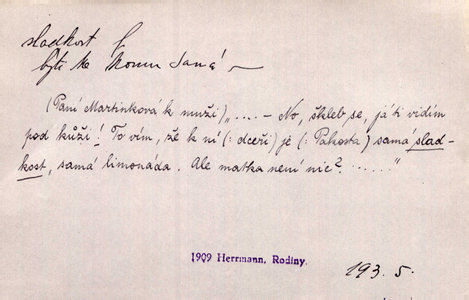 sladkost f
býti ke komu samá ~
(Paní Martinková k muži) „.... – No, škleb se, já ti vidím
pod kůži! To vím, že k ní (: dceři) je (: Pakosta) samá slad-
kost, samá limonáda. Ale matka není nic? ......"
1909 Herrmann, Rodiny.
193. 5.